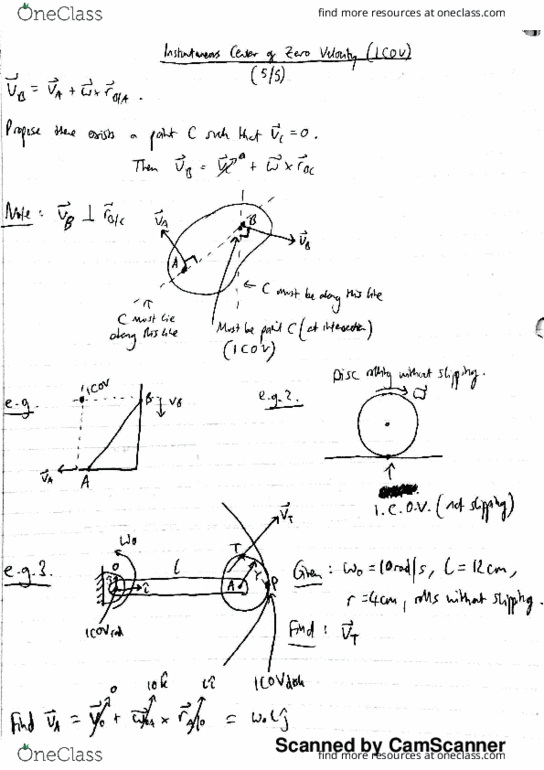 OneClass
find more resources at oneclass.com
Instantaneous Center of Zero Velocity (ICOV)
(5/5)
V⃗_B = V⃗_A + ω⃗ × r⃗_B/A .
Propose there exists a point C such that V⃗_C = 0.
Then V⃗_B = V⃗_C⁰ + ω⃗ × r⃗_B/C
Note : V⃗_B ⊥ r⃗_B/C
V⃗_A
B
V⃗_B
A
← C must be along this line
C must lie
along this line
Must be point C (at intersection)
(ICOV)
e.g.
ICOV
B
V_B
V⃗_A
A
e.g. 2.
Disc rolling without slipping.
ω⃗
I.C.O.V. (not slipping)
e.g.3.
ω₀
O
î
l
T
V⃗_T
A
r
P
ICOV rod
ICOV disk
Given : ω₀ = 10 rad/s, L = 12cm,
r = 4cm, rolls without slipping.
Find : V⃗_T
0 10k̂ lî
Find V⃗_A = V⃗_O + ω⃗_OA × r⃗_A/O = ω₀Lĵ
Scanned by CamScanner
OneClass
find more resources at oneclass.com